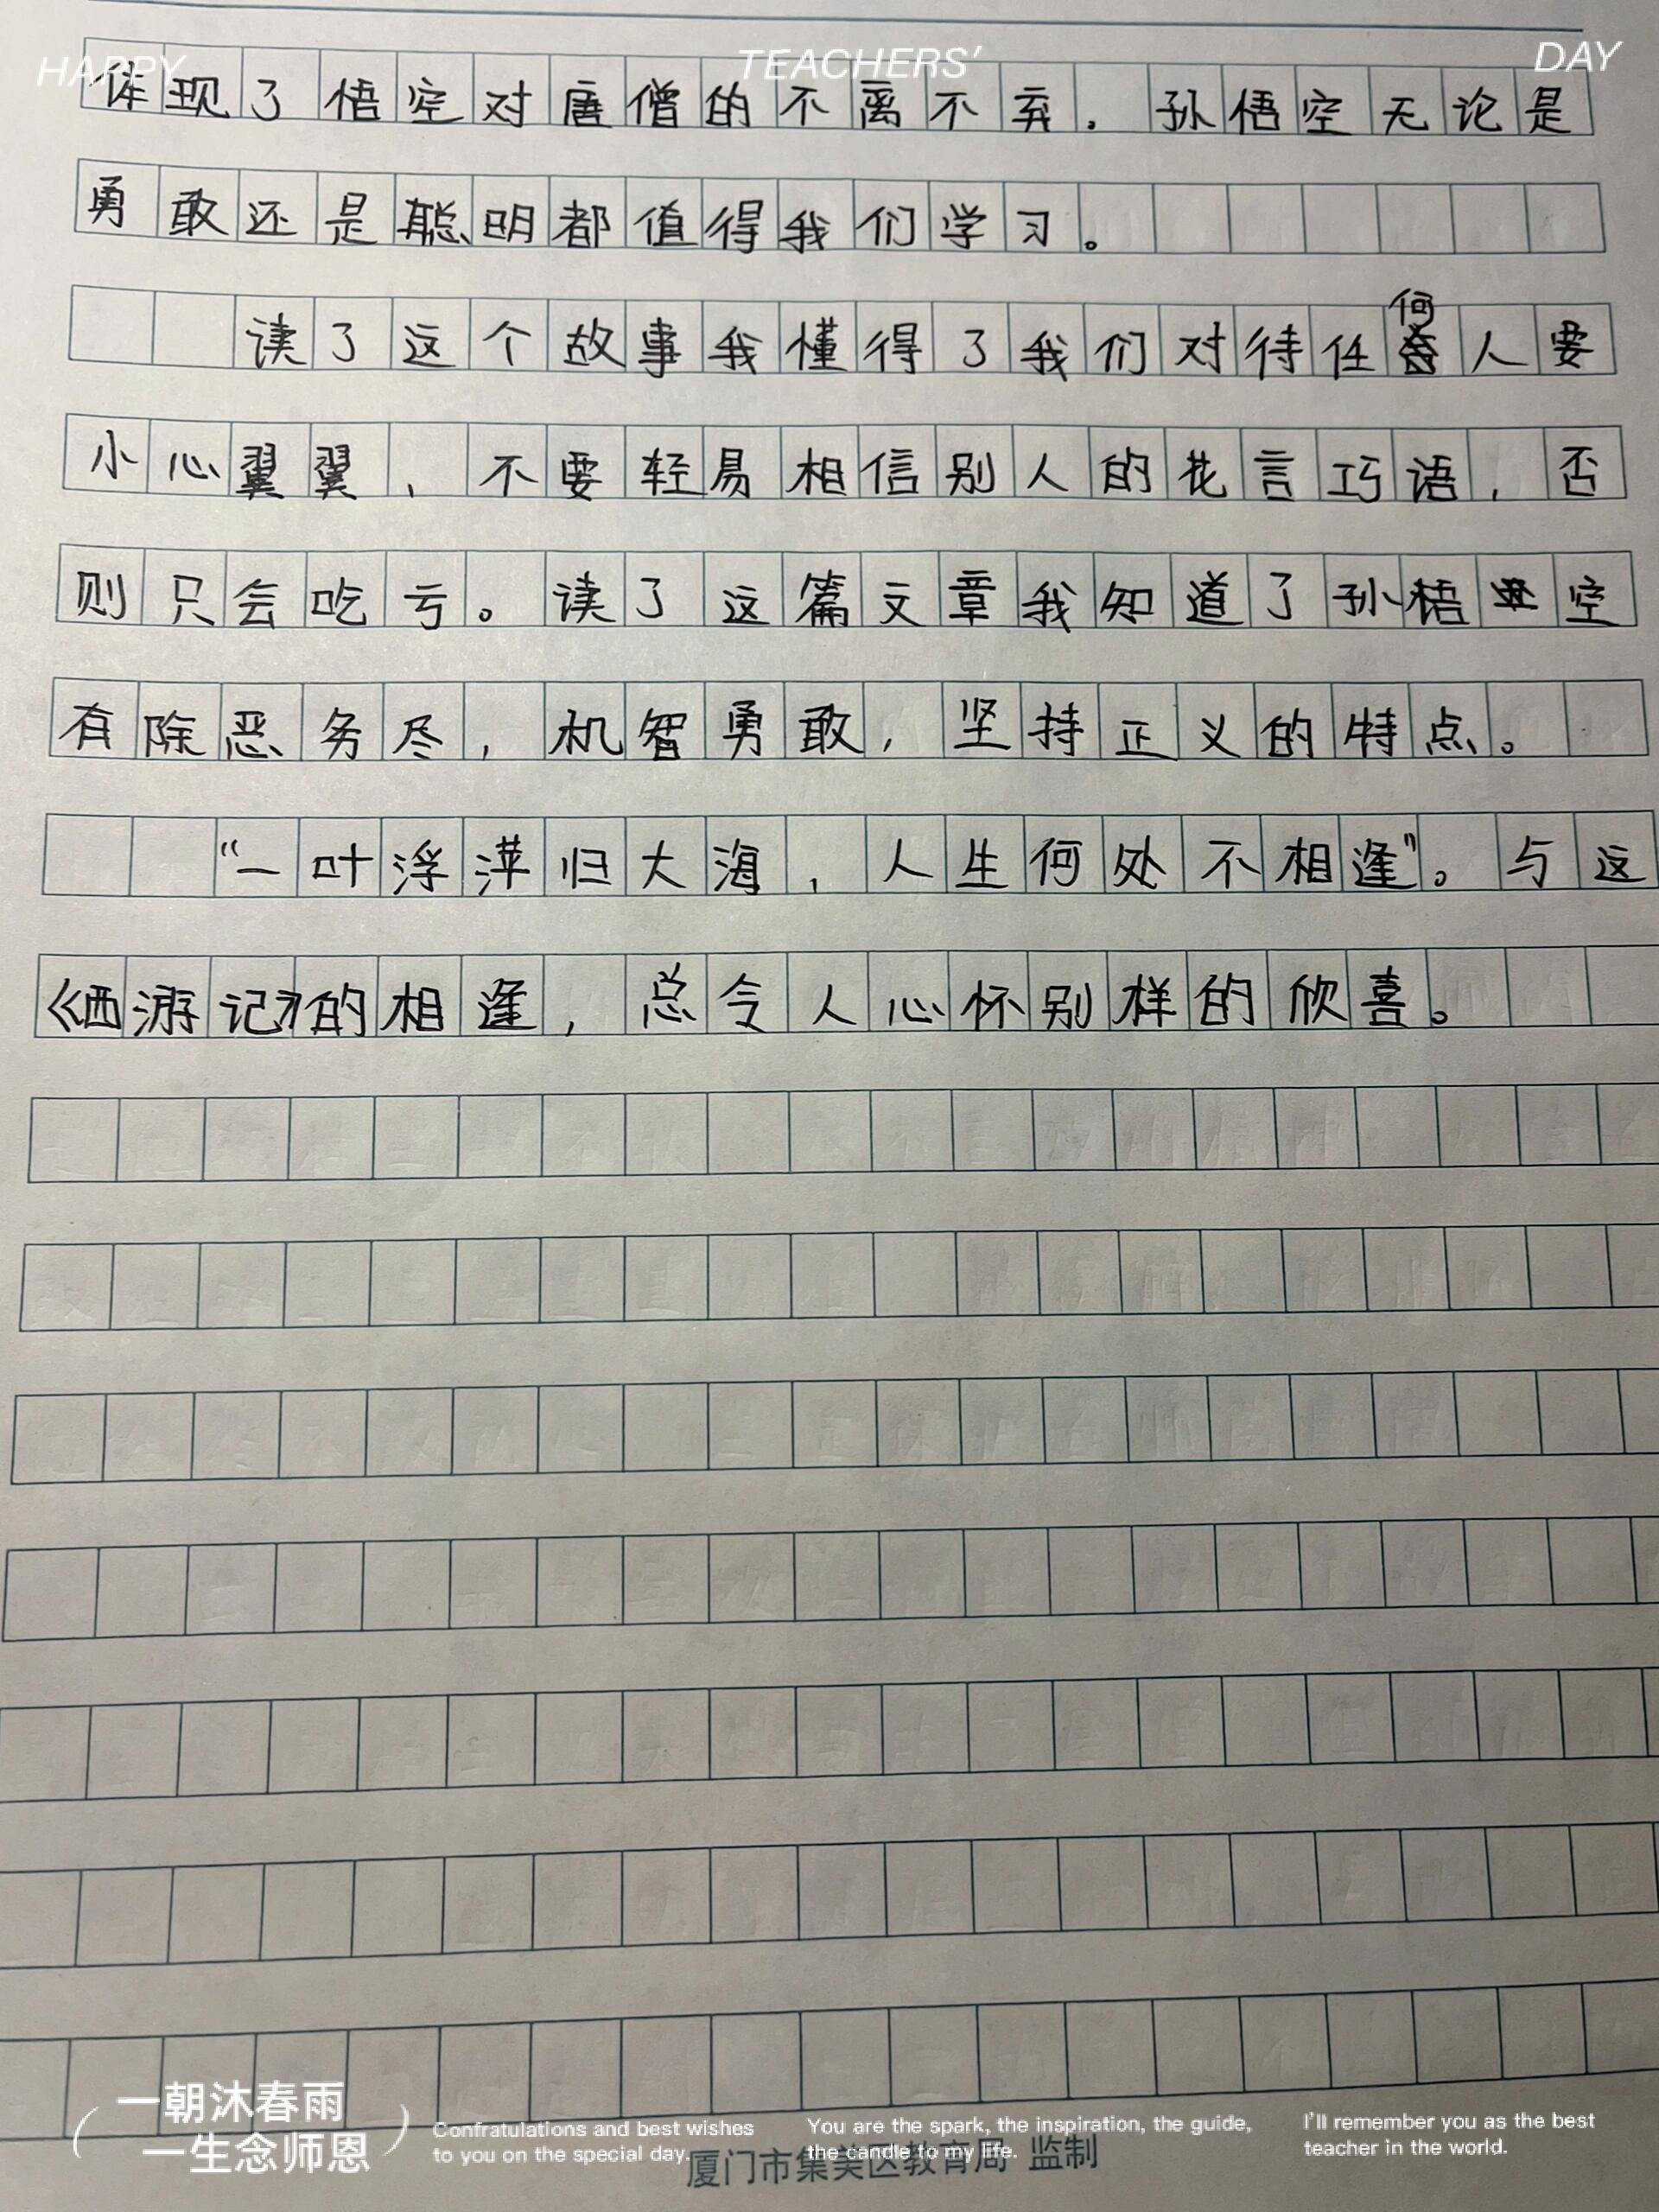 HAPPY TEACHERS' DAY
体现了悟空对唐僧的不离不弃. 孙悟空无论是
勇敢还是聪明都值得我们学习。
读了这个故事我懂得了我们对待任何人要
小心翼翼,不要轻易相信别人的花言巧语,否
则只会吃亏。读了这篇文章我知道了孙悟空
有除恶务尽,机智勇敢,坚持正义的特点。
“一叶浮萍归大海,人生何处不相逢”。与这
《西游记》的相逢,总令人心怀别样的欣喜。
一朝沐春雨
一生念师恩
Confratulations and best wishes
to you on the special day.
You are the spark, the inspiration, the guide,
the candle to my life.
I'll remember you as the best
teacher in the world.
厦门市集美区教育局 监制